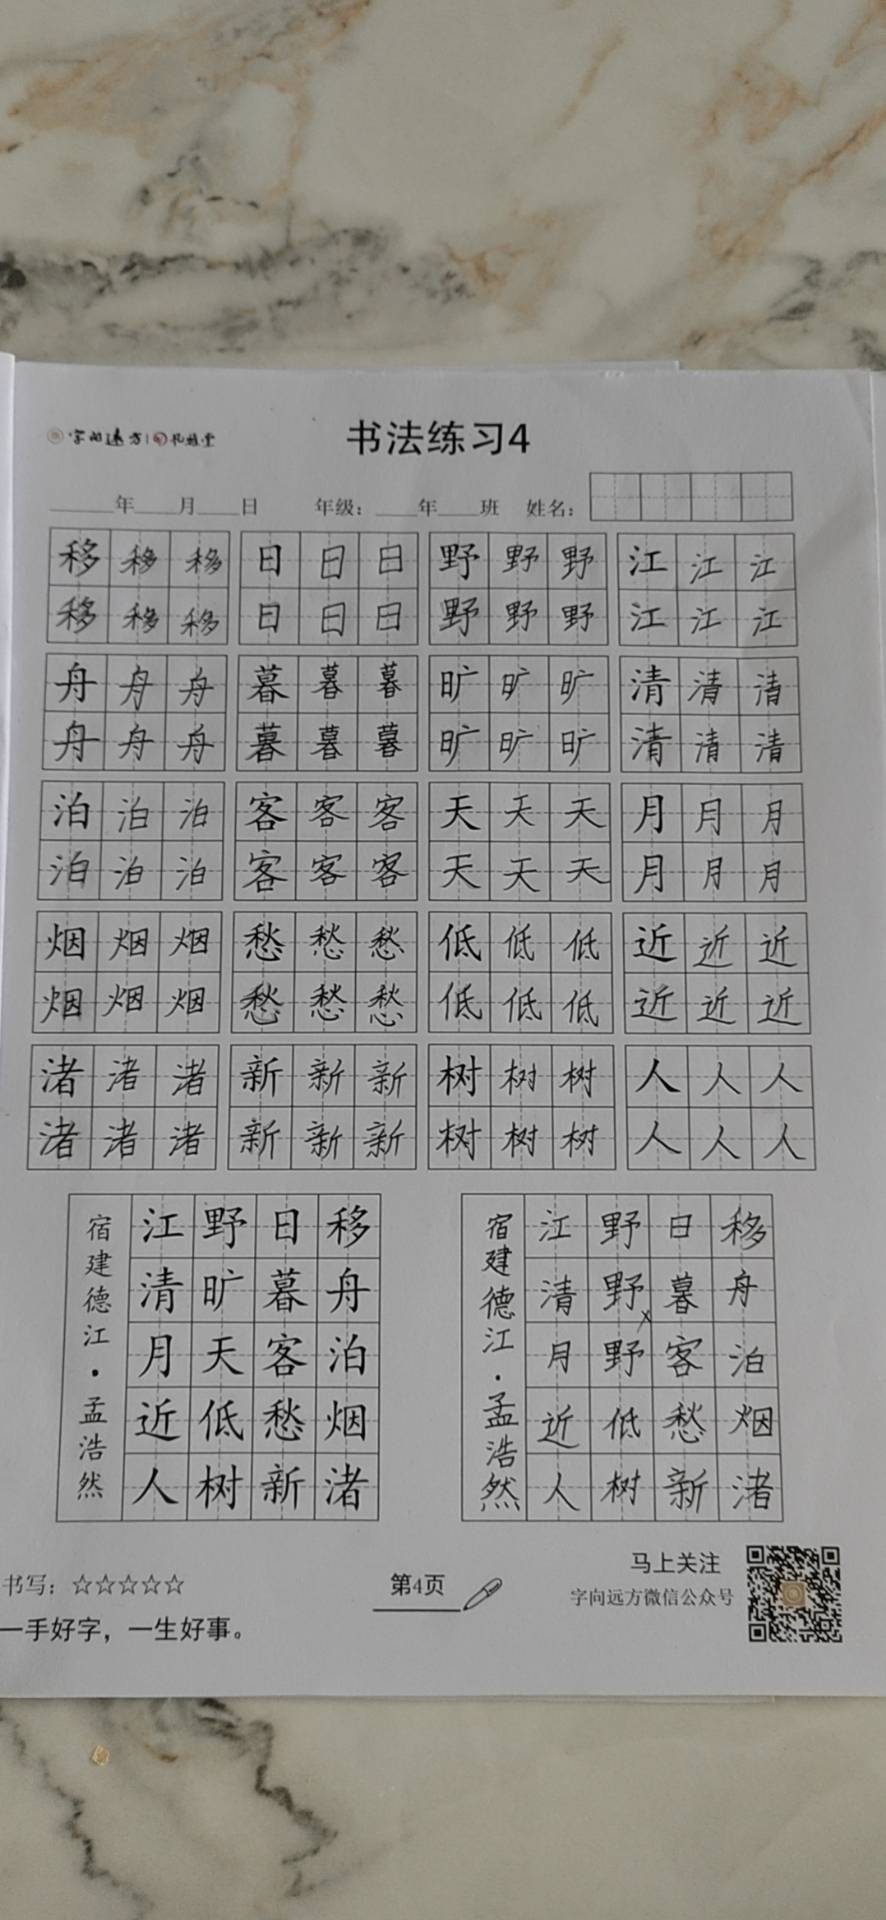 字向远方 礼雅堂
书法练习4
年 月 日 年级： 年 班 姓名：
移 移 移 日 日 日 野 野 野 江 江 江
移 移 移 日 日 日 野 野 野 江 江 江
舟 舟 舟 暮 暮 暮 旷 旷 旷 清 清 清
舟 舟 舟 暮 暮 暮 旷 旷 旷 清 清 清
泊 泊 泊 客 客 客 天 天 天 月 月 月
泊 泊 泊 客 客 客 天 天 天 月 月 月
烟 烟 烟 愁 愁 愁 低 低 低 近 近 近
烟 烟 烟 愁 愁 愁 低 低 低 近 近 近
渚 渚 渚 新 新 新 树 树 树 人 人 人
渚 渚 渚 新 新 新 树 树 树 人 人 人
移舟泊烟渚
日暮客愁新
野旷天低树
江清月近人
宿建德江·孟浩然
移舟泊烟渚
日暮客愁新
野野野低树
江清月近人
宿建德江·孟浩然
书写：☆☆☆☆☆
一手好字，一生好事。
第4页
马上关注
字向远方微信公众号